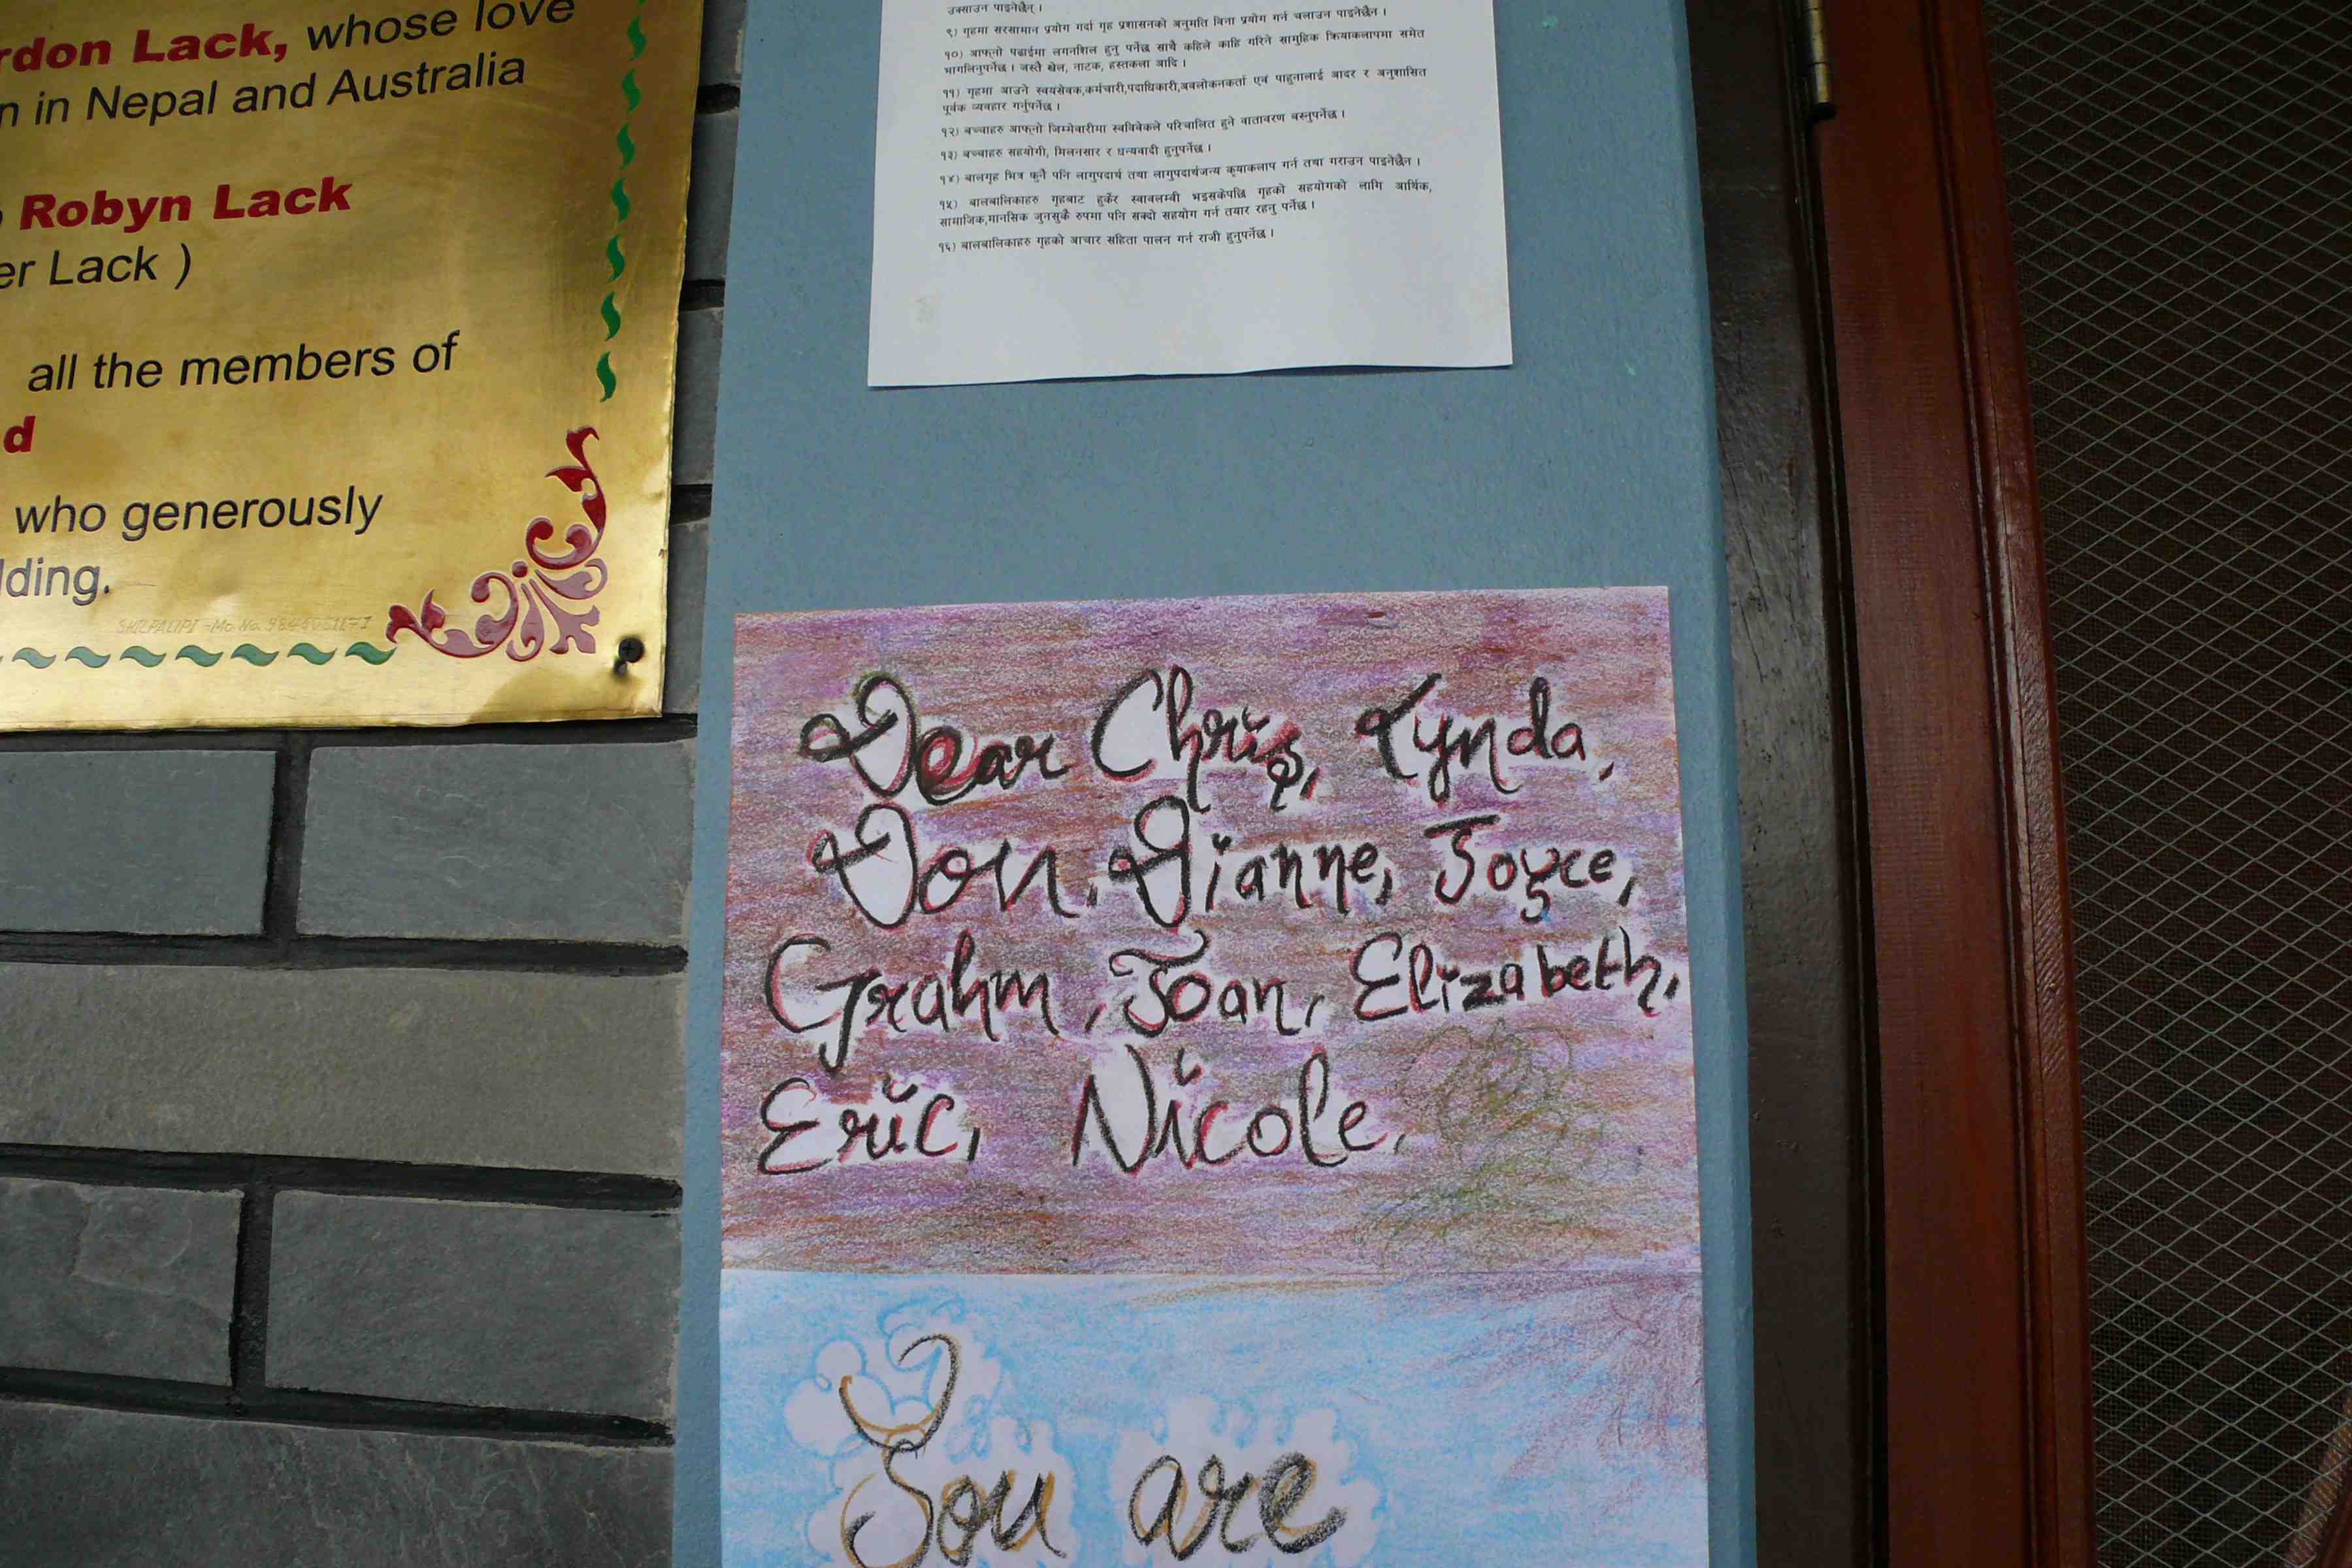 rdon Lack, whose love
n in Nepal and Australia
Robyn Lack
er Lack )
all the members of
d
who generously
lding.
SHILPALIPI -Mo. No.
उक्साउन पाइनेछैन् ।
९) गृहमा सरसामान प्रयोग गर्दा गृह प्रशासनको अनुमति बिना प्रयोग गर्न चलाउन पाइनेछैन ।
१०) आफ्नो पढाईमा लगनशिल हुनु पर्नेछ साथै कहिले काहि गरिने सामुहिक क्रियाकलापमा समेत
भागलिनुपर्नेछ । जस्तै खेल, नाटक, हस्तकला आदि ।
११) गृहमा आउने स्वयंसेवक,कर्मचारी,पदाधिकारी,अवलोकनकर्ता एवं पाहुनालाई आदर र अनुशासित
पूर्वक व्यवहार गर्नुपर्नेछ ।
१२) बच्चाहरु आफ्नो जिम्मेवारीमा स्वविवेकले परिचालित हुने वातावरण बस्नुपर्नेछ ।
१३) बच्चाहरु सहयोगी, मिलनसार र धन्यवादी हुनुपर्नेछ ।
१४) बालगृह भित्र कुनै पनि लागुपदार्थ तथा लागुपदार्थजन्य कृयाकलाप गर्न तथा गराउन पाइनेछैन ।
१५) बालबालिकाहरु गृहबाट हुर्केर स्वावलम्वी भइसकेपछि गृहको सहयोगको लागि आर्थिक,
सामाजिक,मानसिक जुनसुकै रुपमा पनि सक्दो सहयोग गर्न तयार रहनु पर्नेछ ।
१६) बालबालिकाहरु गृहको आचार सहिता पालन गर्न राजी हुनुपर्नेछ ।
Dear Chris, Lynda,
Don, Dianne, Joyce,
Grahm, Joan, Elizabeth,
Eric, Nicole,
You are